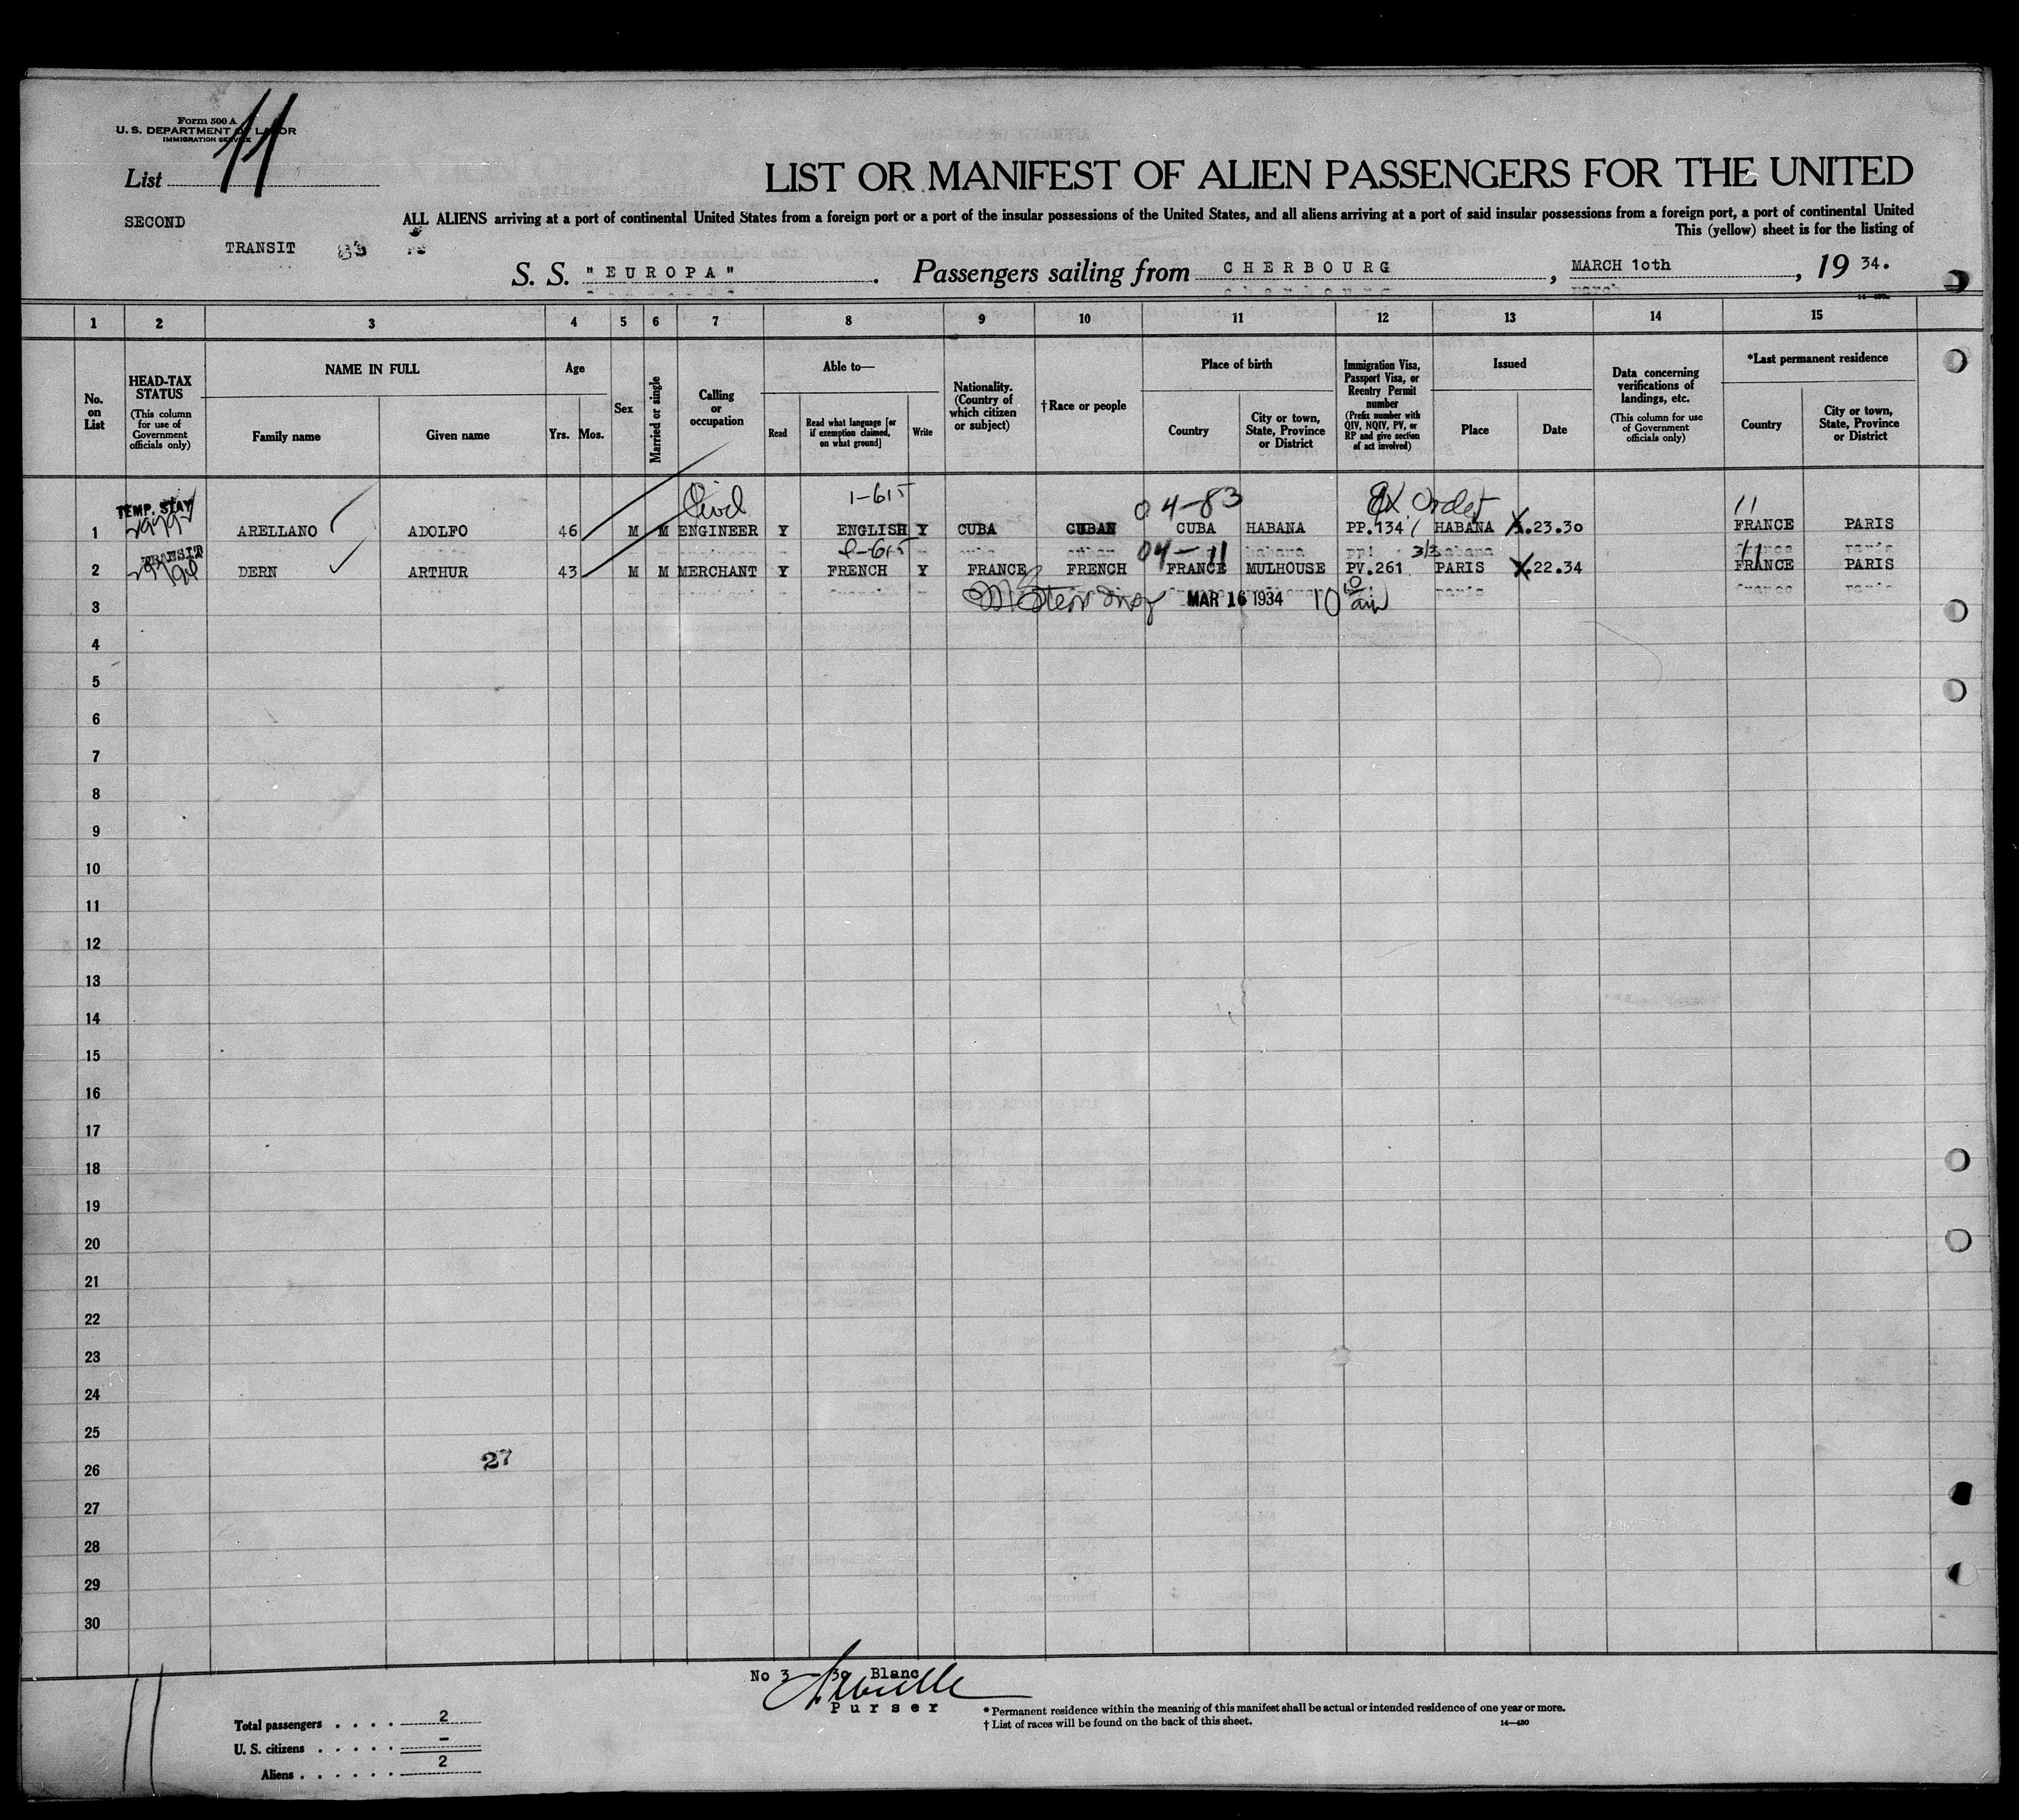 Form 500 A
U. S. DEPARTMENT OF LABOR
IMMIGRATION SERVICE
List 11
LIST OR MANIFEST OF ALIEN PASSENGERS FOR THE UNITED
SECOND
ALL ALIENS arriving at a port of continental United States from a foreign port or a port of the insular possessions of the United States, and all aliens arriving at a port of said insular possessions from a foreign port, a port of continental United
This (yellow) sheet is for the listing of
TRANSIT
S. S. "EUROPA". Passengers sailing from CHERBOURG, MARCH 10th, 19 34.
1 2 3 4 5 6 7 8 9 10 11 12 13 14 15
No. on List
HEAD-TAX STATUS (This column for use of Government officials only)
NAME IN FULL
Family name
Given name
Age
Yrs. Mos.
Sex
Married or single
Calling or occupation
Able to—
Read
Read what language [or if exemption claimed, on what ground]
Write
Nationality. (Country of which citizen or subject)
†Race or people
Place of birth
Country
City or town, State, Province or District
Immigration Visa, Passport Visa, or Reentry Permit number (Prefix number with QIV, NQIV, PV, or RP and give section of act involved)
Issued
Place
Date
Data concerning verifications of landings, etc. (This column for use of Government officials only)
*Last permanent residence
Country
City or town, State, Province or District
TEMP. STAY Civil 1-615 04-83 Ex. Order 11
1 ARELLANO ADOLFO 46 M M ENGINEER Y ENGLISH Y CUBA CUBAN CUBA HABANA PP.134 HABANA .23.30 FRANCE PARIS
TRANSIT 04-11 3/3 11
2 DERN ARTHUR 43 M M MERCHANT Y FRENCH Y FRANCE FRENCH FRANCE MULHOUSE PV.261 PARIS .22.34 FRANCE PARIS
3 MAR 16 1934 10
4
5
6
7
8
9
10
11
12
13
14
15
16
17
18
19
20
21
22
23
24
25
27
26
27
28
29
30
No 3 - 30 Blanc
Purser
* Permanent residence within the meaning of this manifest shall be actual or intended residence of one year or more.
† List of races will be found on the back of this sheet.
14—430
11
Total passengers . . . . 2
U. S. citizens . . . . . -
Aliens . . . . . . 2